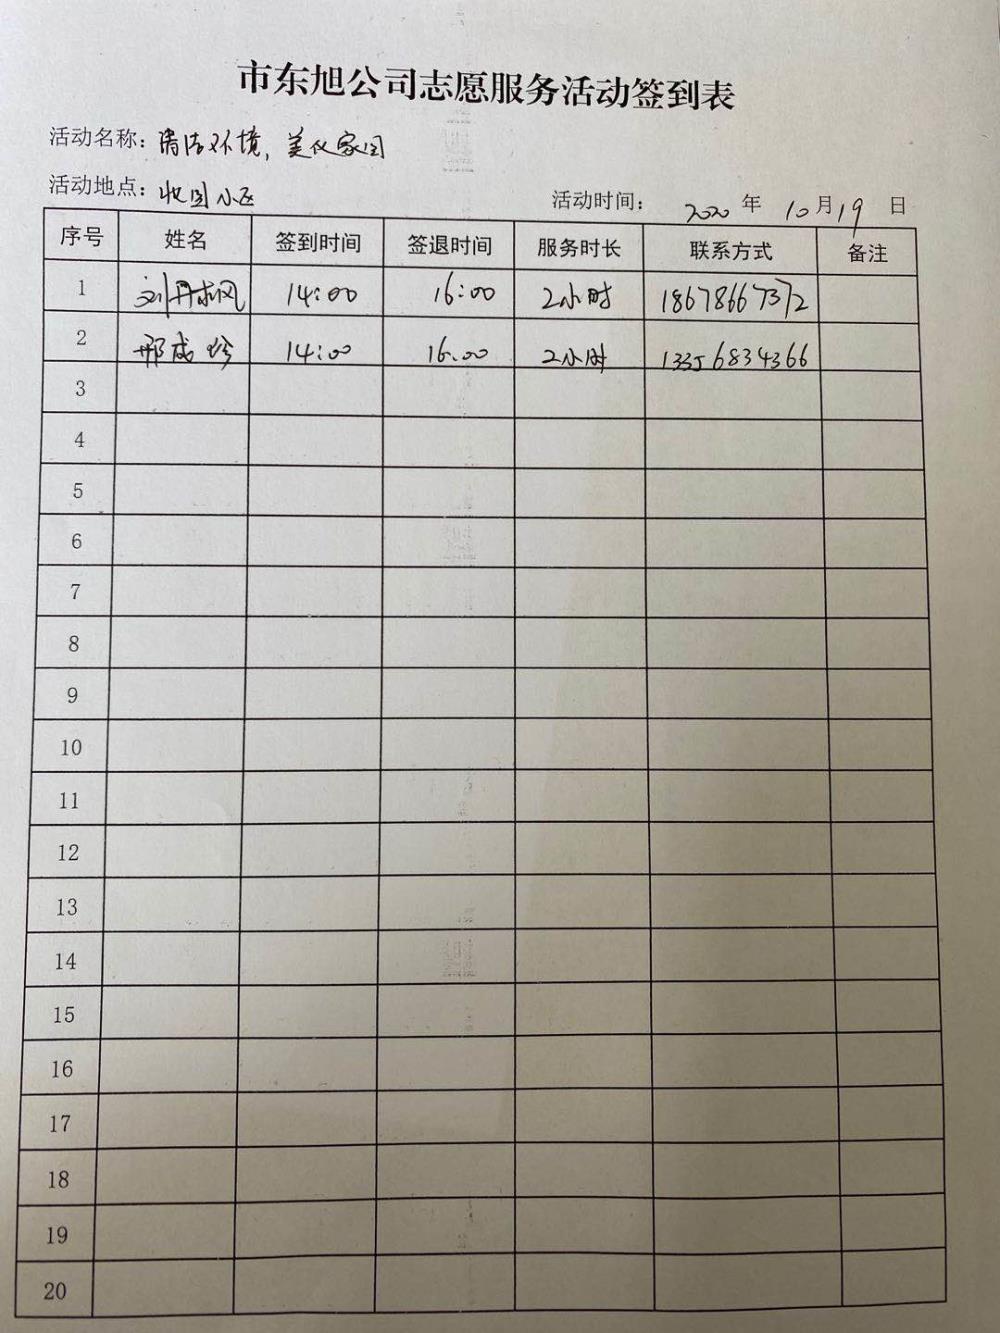 市东旭公司志愿服务活动签到表
活动名称：清洁环境，美化家园
活动地点：小区 活动时间：2020年10月19日
序号 姓名 签到时间 签退时间 服务时长 联系方式 备注
1 刘丹枫 14:00 16:00 2小时 18678667372
2 邢成珍 14:00 16.00 2小时 13356834366
3
4
5
6
7
8
9
10
11
12
13
14
15
16
17
18
19
20